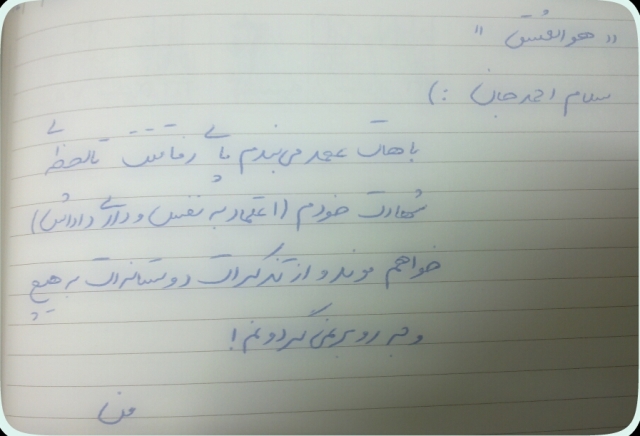 "هوالعشق"
سلام احمد جان :)
باهات عهد می‌بندم پای رفاقت تا لحظه‌ی
شهادت خودم (اعتماد به نفس و داری داداش)
خواهم موند و از تذکرات دوستانه‌ات به هیچ
وجه رو برنمی‌گردونم!
من